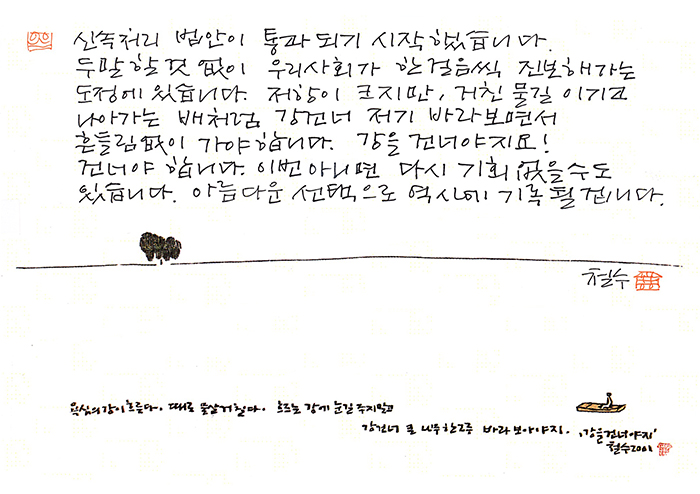 신속처리 법안이 통과되기 시작했습니다.
두말할 것 없이 우리사회가 한걸음씩 진보해가는
도정에 있습니다. 저항이 크지만, 거친 물길 이기고
나아가는 배처럼, 강건너 저기 바라보면서
흔들림없이 가야합니다. 강을 건너야지요!
건너야 합니다. 이번 아니면 다시 기회 없을수도
있습니다. 아름다운 선택으로 역사에 기록될겁니다.
철수
욕심의 강이 흐른다. 때로 물살 거칠다. 흐르는 강에 눈길 주지말고
강건너 큰 나무 한그루 바라보아야지. '강을 건너야지'
철수 2001